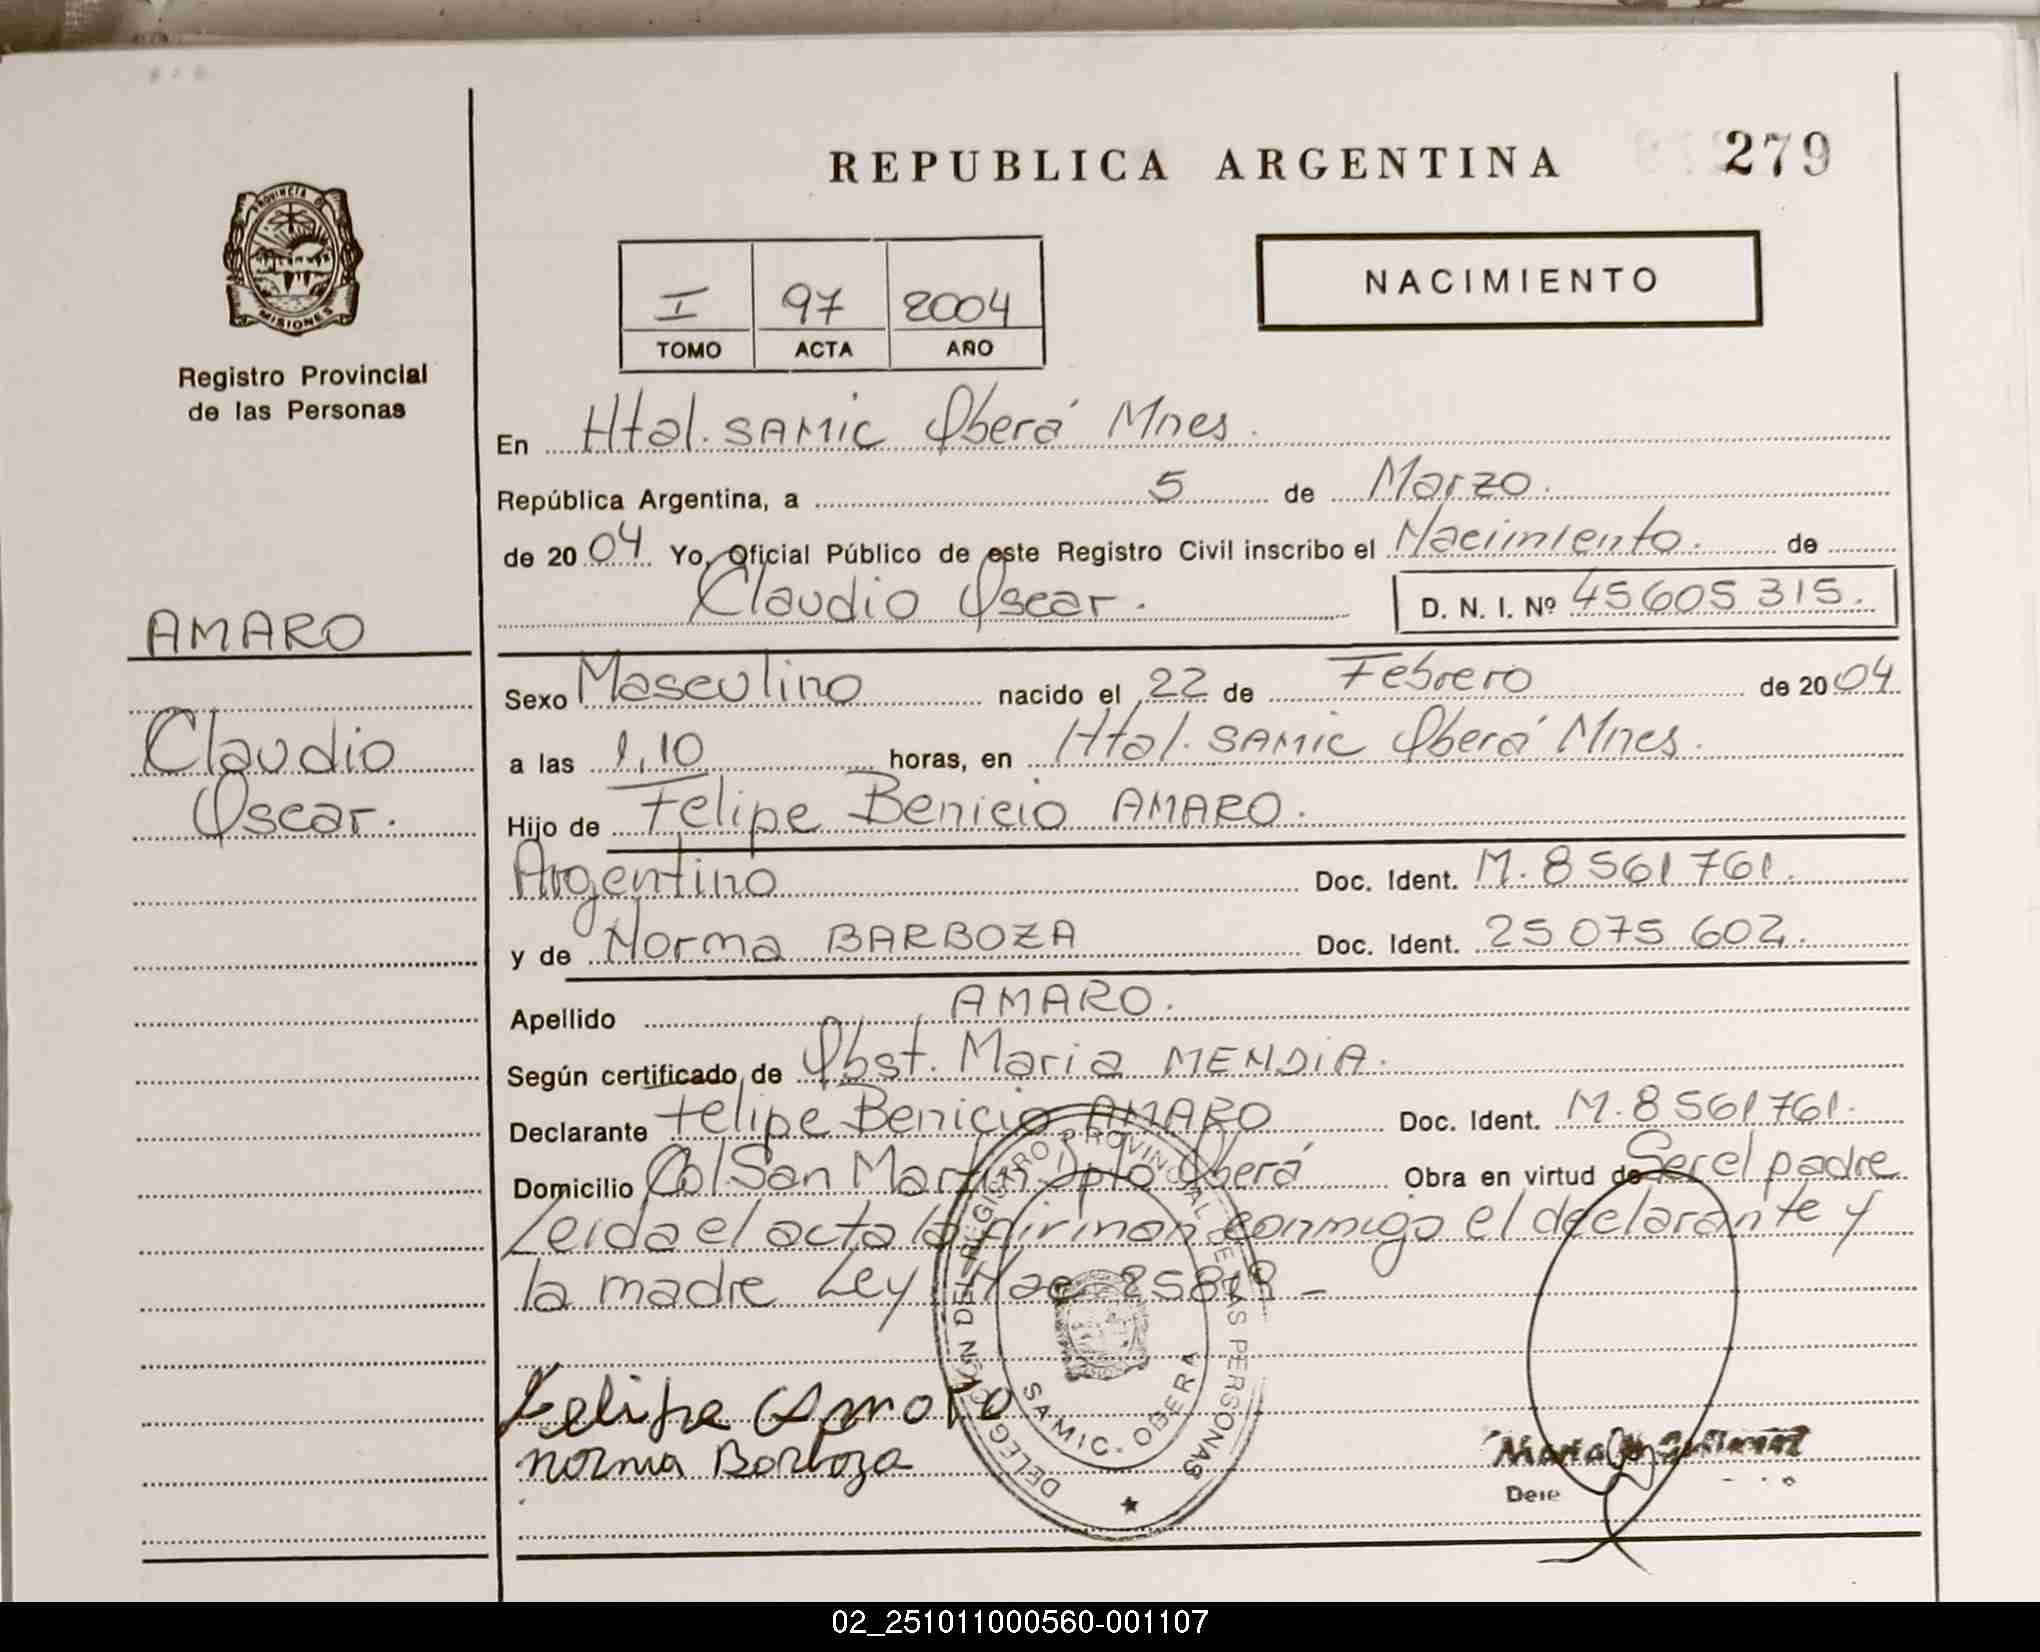 REPUBLICA ARGENTINA
279
PROVINCIA D MISIONES
Registro Provincial
de las Personas
I 97 2004
TOMO ACTA AÑO
NACIMIENTO
En Htal. SAMIC Oberá Mnes.
República Argentina, a 5 de Marzo.
de 2004. Yo, Oficial Público de este Registro Civil inscribo el Nacimiento. de
Claudio Oscar.
D. N. I. Nº 45605315.
AMARO
Claudio
Oscar.
Sexo Masculino nacido el 22 de Febrero de 2004
a las 1,10 horas, en Htal. SAMIC Oberá Mnes.
Hijo de Felipe Benicio AMARO.
Argentino Doc. Ident. M. 8561761.
y de Norma BARBOZA Doc. Ident. 25075602.
Apellido AMARO.
Según certificado de Obst. Maria MENDIA.
Declarante Felipe Benicio AMARO Doc. Ident. M. 8561761.
Domicilio Col San Martin Dpto Oberá Obra en virtud de Ser el padre
Leida el acta la firman conmigo el declarante y
la madre Ley Nac 25819 -
Felipe Amaro
norma Borboza
DELEGACION DEL REGISTRO PROVINCIAL DE LAS PERSONAS
SAMIC - OBERA
Maria
Dele
02_251011000560-001107